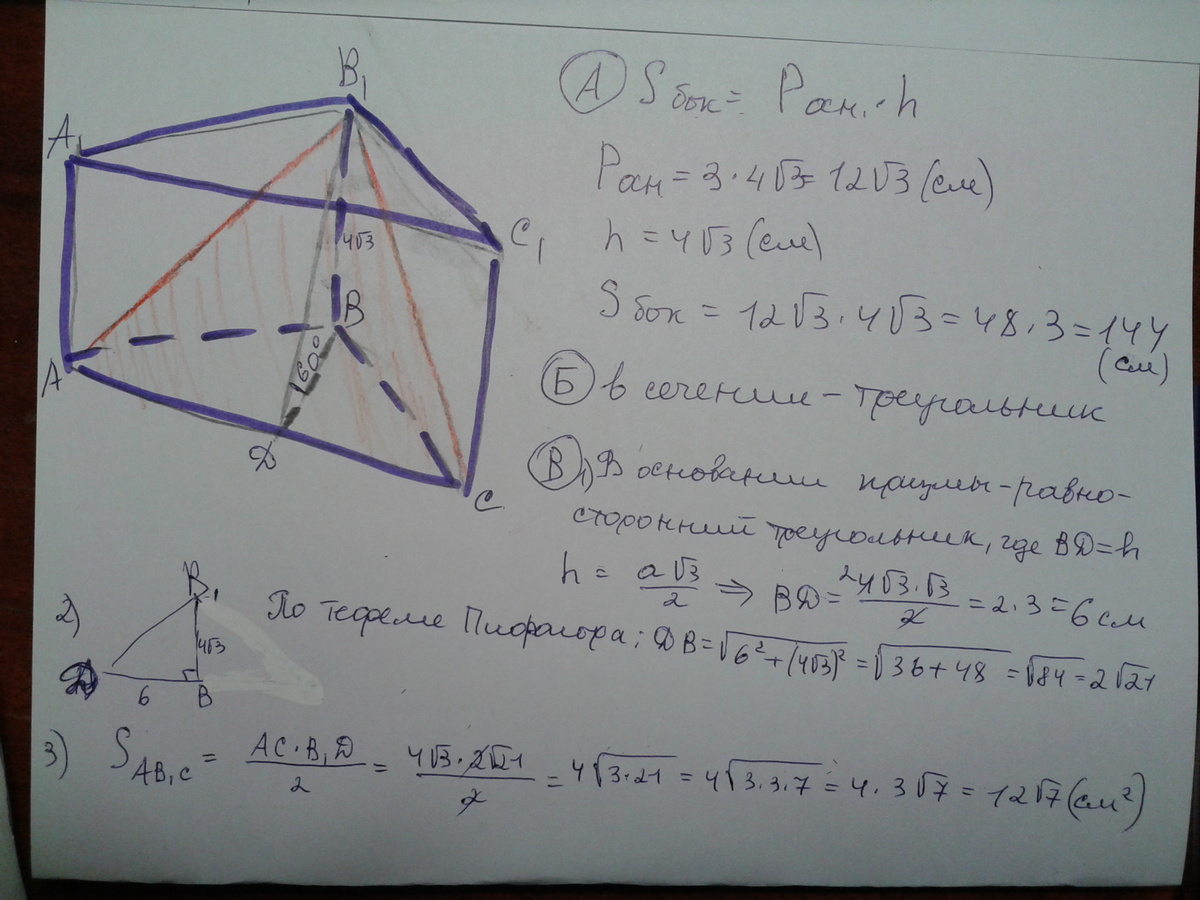 B₁
A₁
C₁
4√3
B
60°
A
D
C
А S бок = P осн. · h
P осн = 3 · 4√3 = 12√3 (см)
h = 4√3 (см)
S бок = 12√3 · 4√3 = 48 · 3 = 144
(см)
Б в сечении – треугольник
В 1) В основании призмы – равно-
сторонний треугольник, где BD = h
h = a√3/2 ⇒ BD = ²4√3·√3/2 = 2·3 = 6 см
2) B₁
4√3
6 B
По теореме Пифагора: DB = √(6² + (4√3)²) = √(36 + 48) = √84 = 2√21
3) S AB₁C = AC·B₁D/2 = 4√3·2√21/2 = 4√(3·21) = 4√(3·3·7) = 4·3√7 = 12√7 (см²)